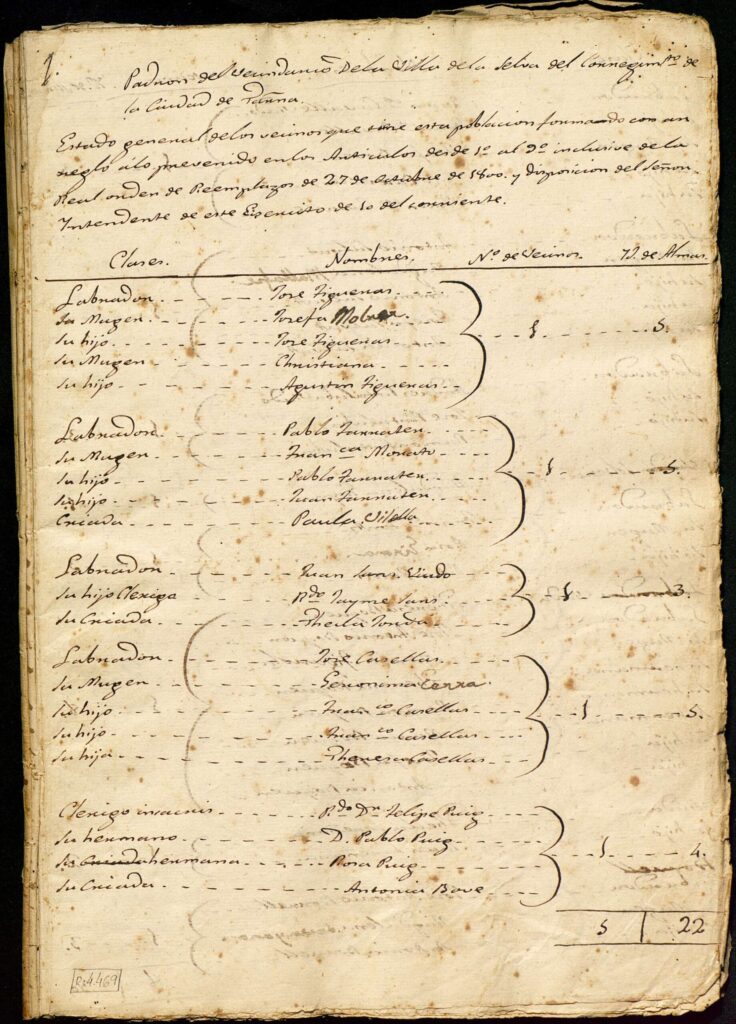 1.
Padron del Vecindario De la Villa de la Selva del Corregimto. de
la Ciudad de Tarrna.
Estado general de los vecinos que tiene esta poblacion formando con ar
reglo á lo prevenido en los Articulos desde 1o. al 9o. inclusive de la
Real orden de Reemplazos de 27 de octubre de 1800. y disposicion del Señor
Intendente de este Exercito de 10 del corriente.
Clases. Nombres. No. de Vecinos. Yd. de Almas.
Labrador. Jose Figueras
Su Muger. Josefa Molner.
Su hijo. Jose Figueras 1 5.
Su Muger. Christiana
Su hijo. Agustin Figueras
Labrador. Pablo Tarraten
Su Muger. Franca. Monato
Su hijo. Pablo Tarraten 1 5.
Su hijo. Juan Tarraten
Criada Paula Vilella
Labrador. Juan Sans Viudo
Su hijo Clerigo Rdo. Jayme Sans 1 3.
Su Criada.
Labrador. Jose Casellas
Su Muger. Geronima Terra
Su hijo. Franco. Casellas 1 5.
Su hijo. Casellas
Su hija. Theresa Casellas
Clerigo insacris Rdo. Dn. Felipe Puig
Su hermano D. Pablo Puig 1 4.
Su Criada hermana Rosa Puig
Su Criada. Antonia Bove
5 22
R.4.469